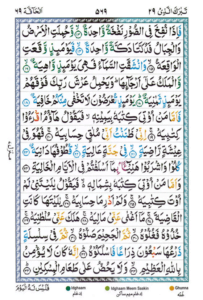 تَبٰرَكَ الَّذِیْ ٢٩ ٥٦٩ اَلْحَآقَّة ٦٩
فَاِذَا نُفِخَ فِی الصُّوْرِ نَفْخَةٌ وَّاحِدَةٌ ۝ وَّحُمِلَتِ الْاَرْضُ
وَالْجِبَالُ فَدُكَّتَا دَكَّةً وَّاحِدَةً ۝ فَیَوْمَىِٕذٍ وَّقَعَتِ
الْوَاقِعَةُ ۝ وَانْشَقَّتِ السَّمَآءُ فَهِیَ یَوْمَىِٕذٍ وَّاهِیَةٌ ۝
وَّالْمَلَكُ عَلٰۤی اَرْجَآىِٕهَا ؕ وَیَحْمِلُ عَرْشَ رَبِّكَ فَوْقَهُمْ
یَوْمَىِٕذٍ ثَمٰنِیَةٌ ۝ یَوْمَىِٕذٍ تُعْرَضُوْنَ لَا تَخْفٰی مِنْكُمْ خَافِیَةٌ ۝
فَاَمَّا مَنْ اُوْتِیَ كِتٰبَهٗ بِیَمِیْنِهٖ ۙ فَیَقُوْلُ هَآؤُمُ اقْرَءُوْا
كِتٰبِیَهْ ۝ اِنِّیْ ظَنَنْتُ اَنِّیْ مُلٰقٍ حِسَابِیَهْ ۝ فَهُوَ فِیْ
عِیْشَةٍ رَّاضِیَةٍ ۝ فِیْ جَنَّةٍ عَالِیَةٍ ۝ قُطُوْفُهَا دَانِیَةٌ ۝
كُلُوْا وَاشْرَبُوْا هَنِیْٓـًٔۢا بِمَاۤ اَسْلَفْتُمْ فِی الْاَیَّامِ الْخَالِیَةِ ۝
وَاَمَّا مَنْ اُوْتِیَ كِتٰبَهٗ بِشِمَالِهٖ ۙ فَیَقُوْلُ یٰلَیْتَنِیْ لَمْ
اُوْتَ كِتٰبِیَهْ ۝ وَلَمْ اَدْرِ مَا حِسَابِیَهْ ۝ یٰلَیْتَهَا كَانَتِ
الْقَاضِیَةَ ۝ مَاۤ اَغْنٰی عَنِّیْ مَالِیَهْ ۝ هَلَكَ عَنِّیْ سُلْطٰنِیَهْ ۝
خُذُوْهُ فَغُلُّوْهُ ۝ ثُمَّ الْجَحِیْمَ صَلُّوْهُ ۝ ثُمَّ فِیْ سِلْسِلَةٍ
ذَرْعُهَا سَبْعُوْنَ ذِرَاعًا فَاسْلُكُوْهُ ۝ اِنَّهٗ كَانَ لَا یُؤْمِنُ
بِاللّٰهِ الْعَظِیْمِ ۝ وَلَا یَحُضُّ عَلٰی طَعَامِ الْمِسْكِیْنِ ۝
فَلَیْسَ لَهُ الْیَوْمَ
Idghaam
Idghaam Meem Saakin
Ghunna